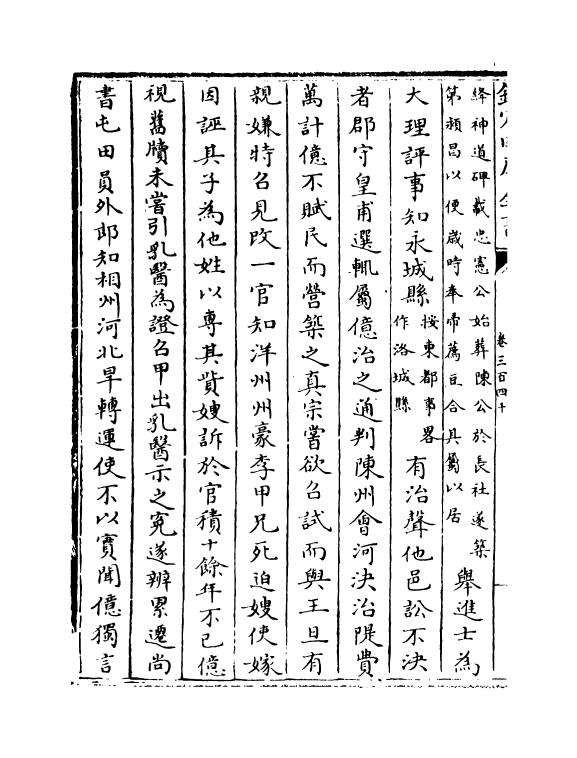 絳神道碑載忠憲公始葬陳公於長社遂築
第潁昌以便歲時奉帚薦豆合其屬以居
舉進士為
大理評事知永城縣
按東都事畧
作洛城縣
有治聲他邑訟不決
者郡守皇甫選輒屬億治之通判陳州會河決治隄費
萬計億不賦民而營築之真宗嘗欲召試而與王旦有
親嫌特召見改一官知洋州州豪李甲兄死迫嫂使嫁
因誣其子為他姓以專其貲嫂訴於官積十餘年不已億
視舊牘未嘗引乳醫為證召甲出乳醫示之冤遂辨累遷尚
書屯田員外郎知相州河北旱轉運使不以實聞億獨言
卷三百四十